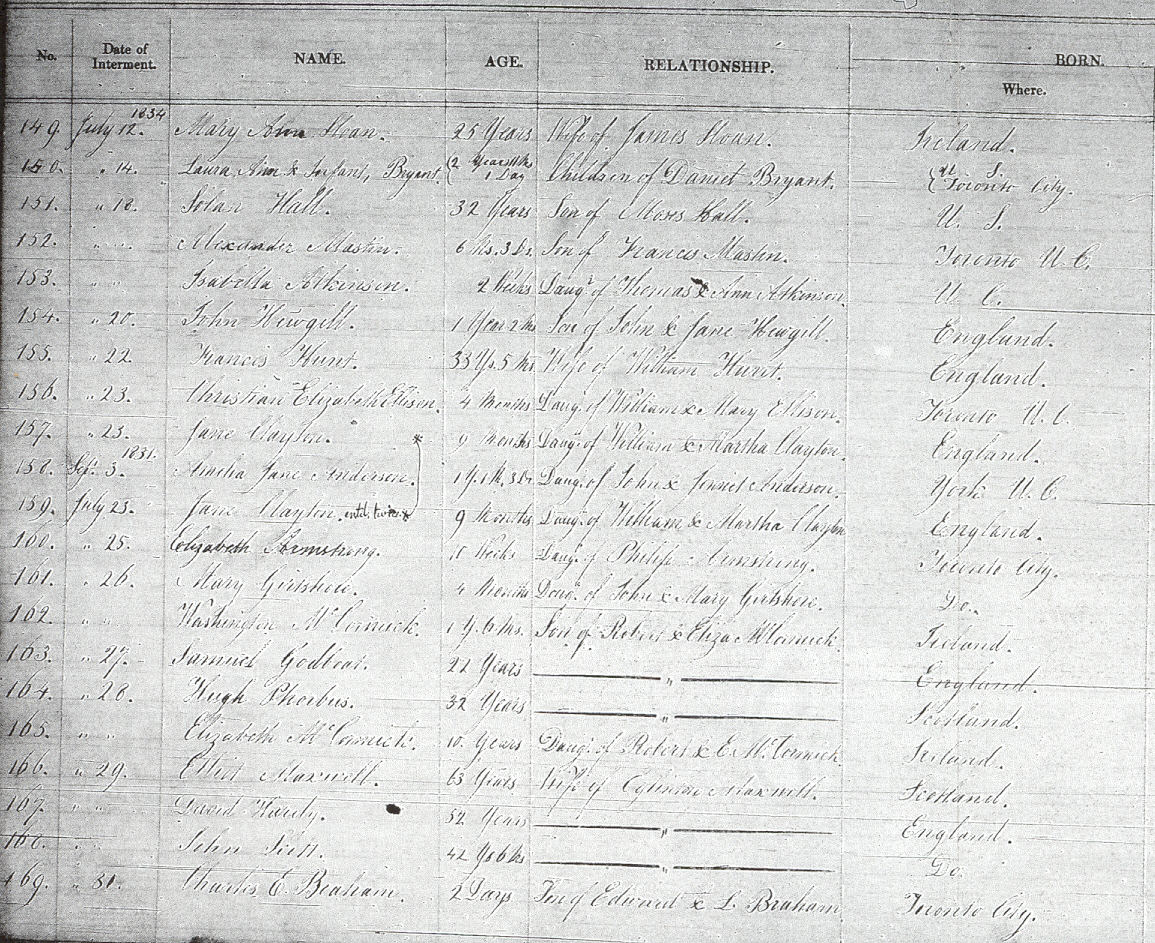 No. Date of Interment. NAME. AGE. RELATIONSHIP. BORN. Where.
149. July 12. 1834 Mary Ann Sloan. 25 Years Wife of James Sloan. Ireland.
150. " 14. Laura Ann & Infant, Bryant. { 2 Years 1 Day Children of Daniel Bryant. { S. Toronto City.
151. " 18. Hall. 32 Years Son of Moses Hall. U. S.
152. " " Alexander Mastin. 6 Ms. 3 Ds. Son of Francis Mastin. Toronto U. C.
153. " " Isabella Atkinson. 2 Weeks Daugr. of Thomas & Ann Atkinson. U. C.
154. " 20. John Hewgill. 1 Year 2 Ms Son of John & Jane Hewgill. England.
155. " 22. Francis Hunt. 33 Ys. 5 Ms Wife of William Hunt. England.
156. " 23. Christian Elizabeth Ellison. 4 Months Daugr. of William & Mary Ellison. Toronto U. C.
157. " 23. Jane Clayton. * 9 Months Daugr. of William & Martha Clayton. England.
158. Sepr. 3. 1831. Amelia Jane Anderson. 1 Y. 1 M. 3 Ds. Daug. of John & Jennet Anderson. York U. C.
159. July 23. Jane Clayton. entd. twice * 9 Months Daugr. of William & Martha Clayton England.
160. " 25. Elizabeth Armstrong. 10 Weeks Daugr. of Philip Armstrong. Toronto City.
161. " 26. Mary Girtshore. 4 Months Daugr. of John & Mary Girtshore. Do.
162. " " Washington McCormick. 1 Y. 6 Ms. Son of Robert & Eliza McCormick. Ireland.
163. " 27. Samuel 22 Years " England.
164. " 28. Hugh Phoebus. 32 Years " Scotland.
165. " " Elizabeth McCormick. 10. Years Daugr. of Robert & E. McCormick Ireland.
166. " 29. Elliot Maxwell. 63 Years Wife of Maxwell. Scotland.
167. " " David Hardy. 52 Years " England.
168. " " John Scott. 42 Ys 6 Ms " Do.
169. " 31. Charles E. Braham. 2 Days Son of Edward & L. Braham. Toronto City.